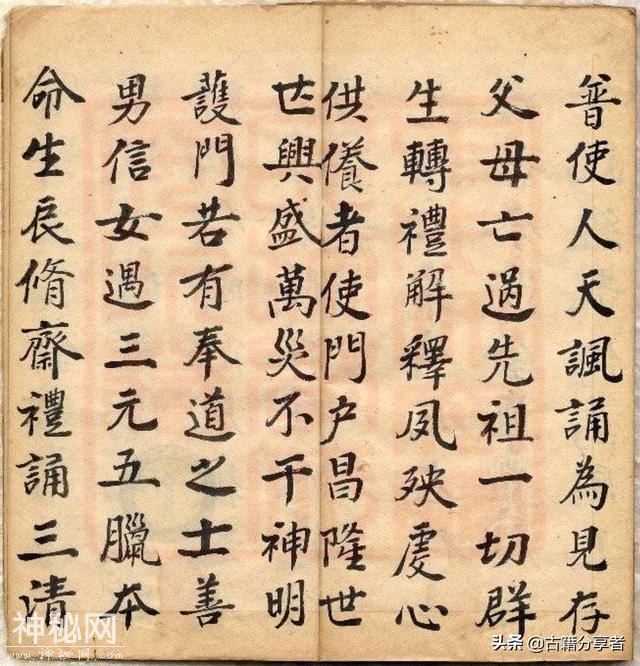 普使人天諷誦為見存
父母亡過先祖一切群
生轉禮解釋夙殃虔心
供養者使門户昌隆世
世興盛萬災不干神明
護門若有奉道之士善
男信女遇三元五臘本
命生辰脩齋禮誦三清
神秘网
头条 @古籍分享者